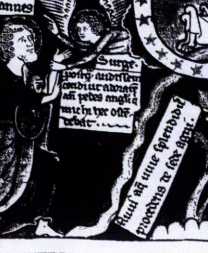 annes
Surge
postq audissem
cecidi ut adorarem
an pedes angeli q
michi hec osten
debat
fluuiū aq uiue splendidū
procedens de sede agni